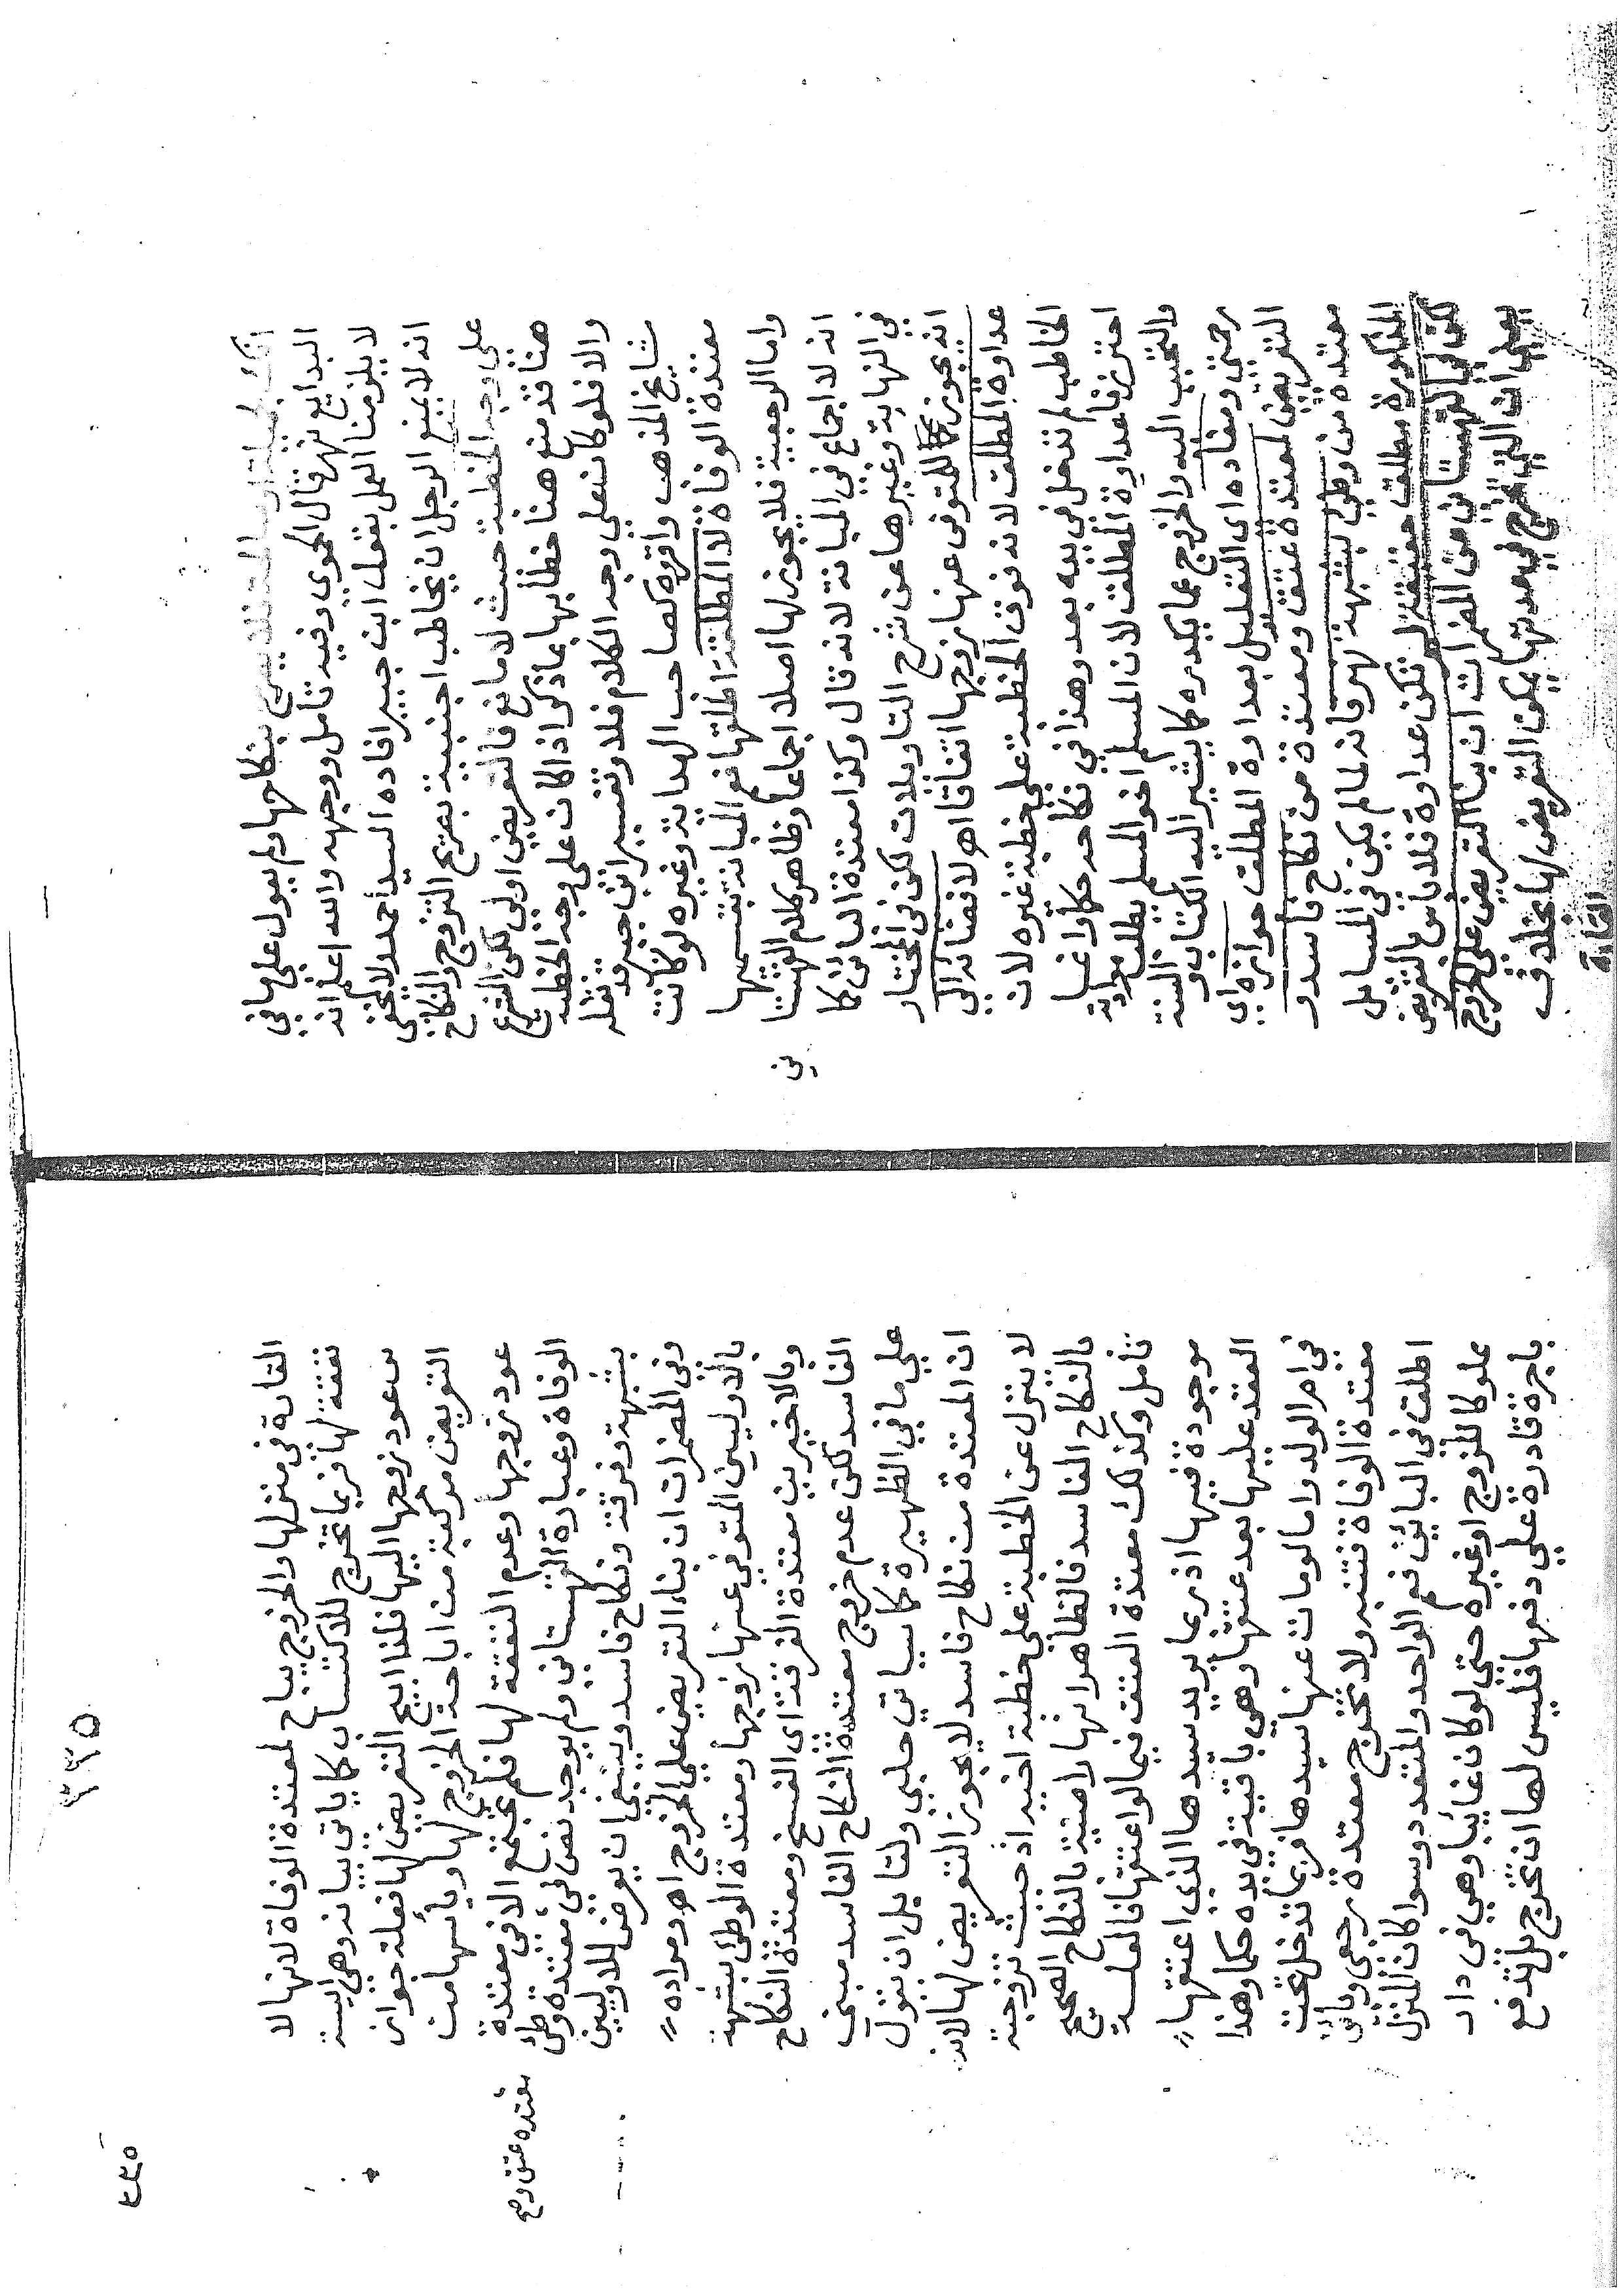 انك لجميلة او صالحة فلا يصرح بنكاحها ولم يعول على ما في
البدايع نهر قال الحموي وفيه تأمل ووجهه والله اعلم انه
لا يلزمنا العمل بقول ابن جبير افاده السيد أحمد ولا يخفى
انه لا يمنع الرجل ان يخاطب اجنبية بصريح التزوج والنكاح
على وجه الخطبة حيث لا مانع فالتعريض اولى لكن الشرع
هنا قد منع هنا خطابها بما ذكر اذا كان على وجه الخطبة
والا فلو كان على وجه الكلام فلا وتفسير ابن جبير قد نقله
مشايخ المذهب واقره كصاحب الهداية وغيره لو كانت
معتدة الوفاة لا المطلقة اطلقها فعم المبانة بقسميها
واما الرجعية فلا يجوز لها اصلا اجماعا وظاهر كلام الفتح
انه لا اجماع في المبانة لانه قال وكذا معتدة البائن كما
في النهاية وغيرها عن شرح التاويلات لكن في المختار
انه يجوز كما للمتوفى عنها زوجها اتفاقا اهـ لافضائه الى
عداوة المطلق لانه فوق الخطبة على خطبة غيره لان
الخاطب لم تدخل في يده بعد وهذا في نكاحه حكما وانما
احترز فاعداوة المطلق لان المسلم اخو المسلم يطلب موادته
والتحبب اليه والخروج عما يكدره كما يشير اليه الكتاب والسنة
رحمتي ومفاده اى التعليل بعداوة المطلق جوازه اي
التعريض لمعتدة عتق ومعتدة من نكاح فاسد و
معتدة من وطئ بشبهة نهر فانه لما لم يكن في المسايل
المذكورة مطلق حقيقة لم تكن عداوة فلا باس بالتعريض
لكن في القهستاني عن المضمرات ان بنا التعريض على الخروج
يعني ان التي تخرج في عدتها يمكن التعريض لها بخلاف
القارة
في
٢٢٥
٤٤٥
القارة في منزلها والخروج يباح لمعتدة الوفاة لانها لا
نفقة لها فربما تخرج للاكتساب كما ياتي بيانه وهي ايست
من عود زوجها اليها فلذا ابيح التعريض لها فعلة جواز
التعريض مركبة من اباحة الخروج لها ويأسها من
عود زوجها وعدم النفقة لها فلم تجتمع الا في معتدة
الوفاة وعبارة القهستاني ولم يوجد نص في معتدة وطئ
بشبهة وفرقة ونكاح فاسد وينبغي ان يعرض للاوليين
وفي المضمرات ان بناء التعريض على الخروج اهـ ومراده
بالاوليين المتوفى عنها زوجها ومعتدة الوطئ بشبهة
وبالاخيرين معتدة الفرقة اى الفسخ ومعتدة النكاح
الفاسد لكن عدم خروج معتدة النكاح الفاسد مبني
على ما في الظهيرة كما سياتي حلبي ولقايل ان يقول
ان المعتدة من نكاح فاسد لا يجوز التعريض لها لانه
لا ينزل عن الخطبة على خطبة اخيه اذ حيث تزوجته
بالنكاح الفاسد فالظاهر انها راضية بالنكاح الصحيح
تأمل وكذلك معتدة العتق فيما لو اعتقها فالعلة
موجودة فيها اذ ربما يريد سيدها الذي اعتقها
العقد عليها بعد عتقها وهي باقية في يده حكما وهذا
في ام الولد واما لو مات عنها سيدها فربما تدخل تحت
معتدة الوفاة فتنبه ولا تخرج معتدة رجعي وبائن
اطلق في البائن فعم الواحد والمتعدد وسوا كان المنزل
مملوكا للزوج او غيره حتى لو كان غايبا وهي في دار
باجرة قادرة على دفعها فليس لها ان تخرج بل تدفع
معتدة عتق وصح